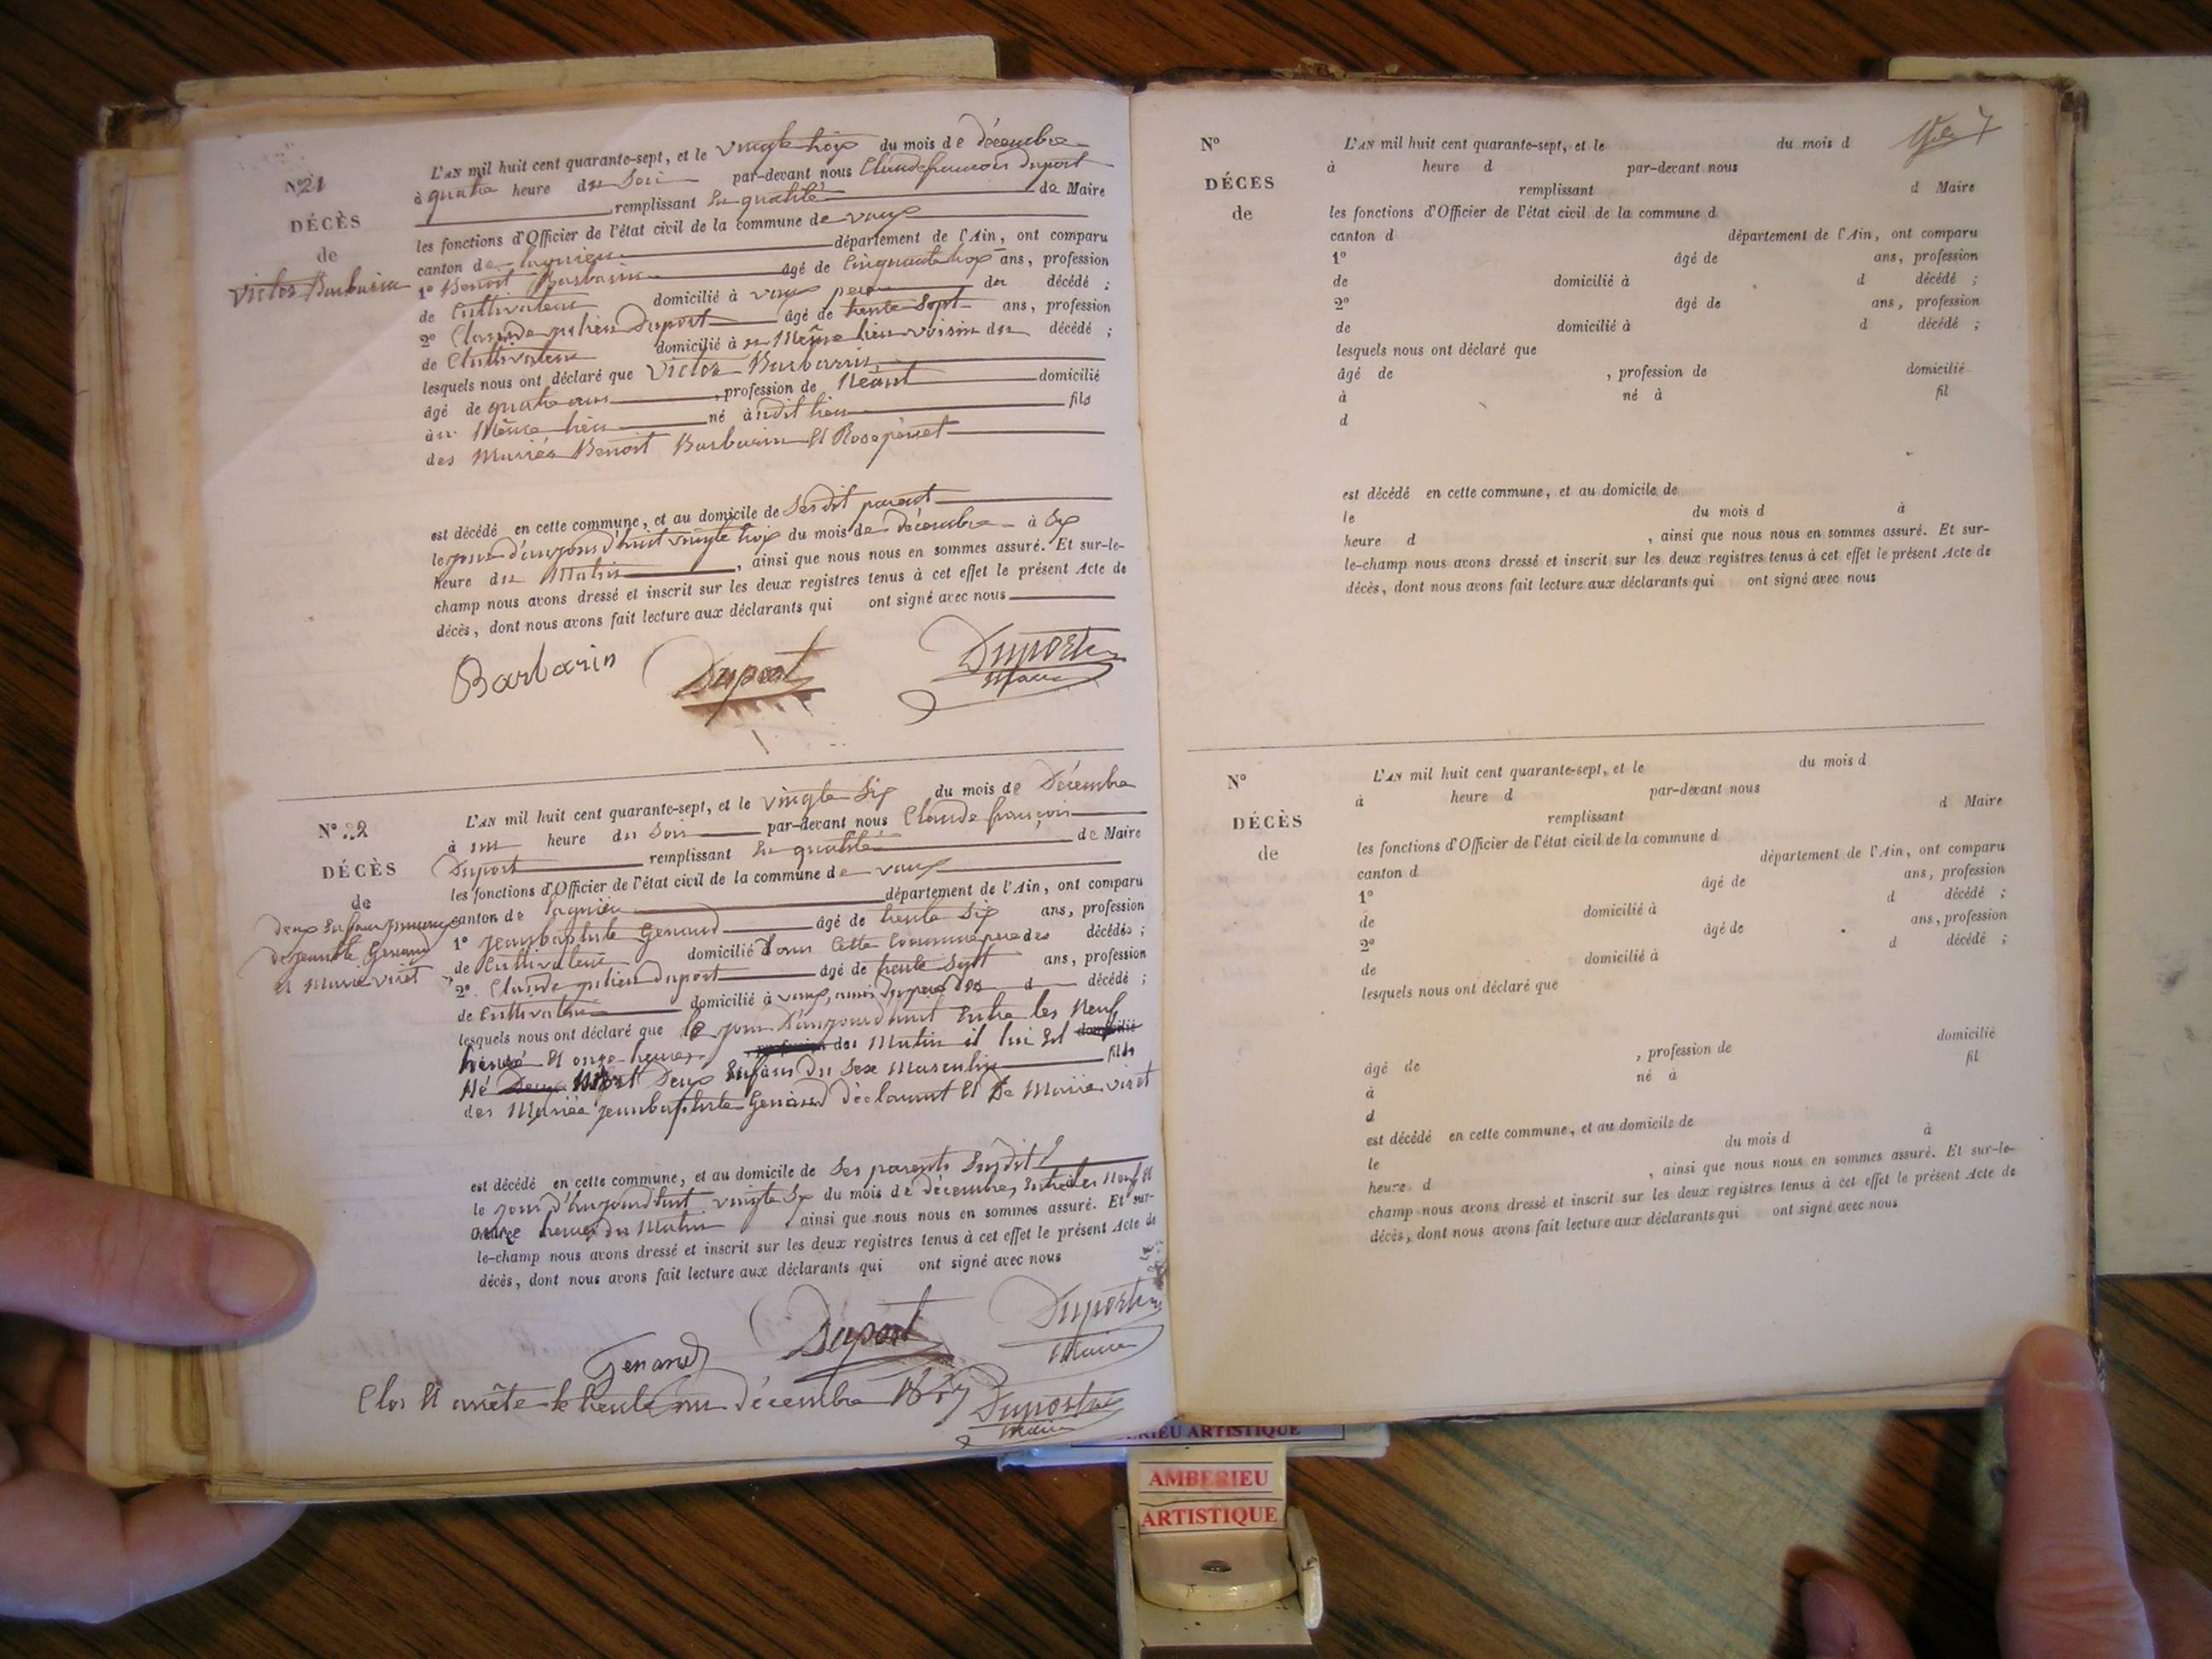 N° 21
DÉCÈS
de
Victor Barbarin
L'AN mil huit cent quarante-sept, et le vingt trois du mois de décembre
à quatre heure du Soir par-devant nous Claude françois Duport
remplissant En qualité de Maire
les fonctions d'Officier de l'état civil de la commune de vaux
canton de lagnieu département de l'Ain, ont comparu
1° Benoit Barbarin âgé de Cinquante trois ans, profession
de Cultivateur domicilié à vaux pere du décédé ;
2° Claude julien Duport âgé de trente Sept ans, profession
de Cultivateur domicilié à au Même lieu voisin du décédé ;
lesquels nous ont déclaré que Victor Barbarin
âgé de quatre ans , profession de Néant domicilié
à au Même lieu né à udit lieu fils
des Mariés Benoit Barbarin Et Rose
est décédé en cette commune, et au domicile de Ses dit parent
le jour d'aujourd'huit vingt trois du mois de décembre à Six
heure du Matin , ainsi que nous nous en sommes assuré. Et sur-le-
champ nous avons dressé et inscrit sur les deux registres tenus à cet effet le présent Acte de
décès, dont nous avons fait lecture aux déclarants qui ont signé avec nous
Barbarin Duport Duport
Maire
N° 22
DÉCÈS
de
deux Enfans jumeaux
de jean bte Genaud
et Marie viret
L'AN mil huit cent quarante-sept, et le vingt Six du mois de Décembre
à un heure du Soir par-devant nous Claude françois
Duport remplissant En qualité de Maire
les fonctions d'Officier de l'état civil de la commune de vaux
canton de lagnieu département de l'Ain, ont comparu
1° jean baptiste Genaud âgé de trente Six ans, profession
de Cultivateur domicilié dans Cette Commune pere des décédés ;
2° Claude julien Duport âgé de trente Sept ans, profession
de Cultivateur domicilié à vaux, du pere des d décédé ;
lesquels nous ont déclaré que le jour D'aujourd'huit Entre les Neuf
heures Et onze heures profession du Matin il lui Est domicilié
Né Deux Mort Deux Enfans du Sexe Masculin fils
des Mariés jean baptiste Genaud déclarant Et De Marie viret
est décédé en cette commune, et au domicile de Ses parents Susdit
le jour d'aujourd'huit vingt Six du mois de décembre, Entre les Neuf Et
onze heures du Matin ainsi que nous nous en sommes assuré. Et sur-
le-champ nous avons dressé et inscrit sur les deux registres tenus à cet effet le présent Acte de
décès, dont nous avons fait lecture aux déclarants qui ont signé avec nous
Genaud Duport Duport
Maire
Clos Et arrête le trente un décembre 1847 Duport
Maire
N°
DÉCÈS
de
L'AN mil huit cent quarante-sept, et le du mois d
à heure d par-devant nous
remplissant d Maire
les fonctions d'Officier de l'état civil de la commune d
canton d département de l'Ain, ont comparu
1° âgé de ans, profession
de domicilié à d décédé ;
2° âgé de ans, profession
de domicilié à d décédé ;
lesquels nous ont déclaré que
âgé de , profession de domicilié
à né à fil
d
est décédé en cette commune, et au domicile de
le du mois d à
heure d , ainsi que nous nous en sommes assuré. Et sur-
le-champ nous avons dressé et inscrit sur les deux registres tenus à cet effet le présent Acte de
décès, dont nous avons fait lecture aux déclarants qui ont signé avec nous
N°
DÉCÈS
de
L'AN mil huit cent quarante-sept, et le du mois d
à heure d par-devant nous
remplissant d Maire
les fonctions d'Officier de l'état civil de la commune d
canton d département de l'Ain, ont comparu
1° âgé de ans, profession
de domicilié à d décédé ;
2° âgé de ans, profession
de domicilié à d décédé ;
lesquels nous ont déclaré que
âgé de , profession de domicilié
à né à fil
d
est décédé en cette commune, et au domicile de
le du mois d à
heure d , ainsi que nous nous en sommes assuré. Et sur-le-
champ nous avons dressé et inscrit sur les deux registres tenus à cet effet le présent Acte de
décès, dont nous avons fait lecture aux déclarants qui ont signé avec nous
ARTISTIQUE
AMBERIEU
ARTISTIQUE